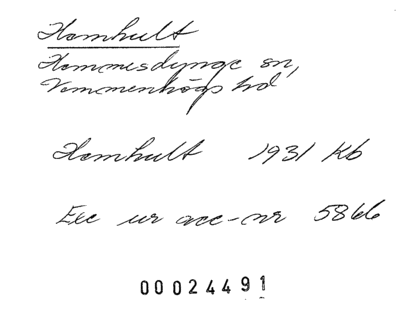 Hamhult
Hammesdynge sn,
Vemmenhögs hd
Hamhult 1931 Kb
Exc ur acc-nr 5866
00024491